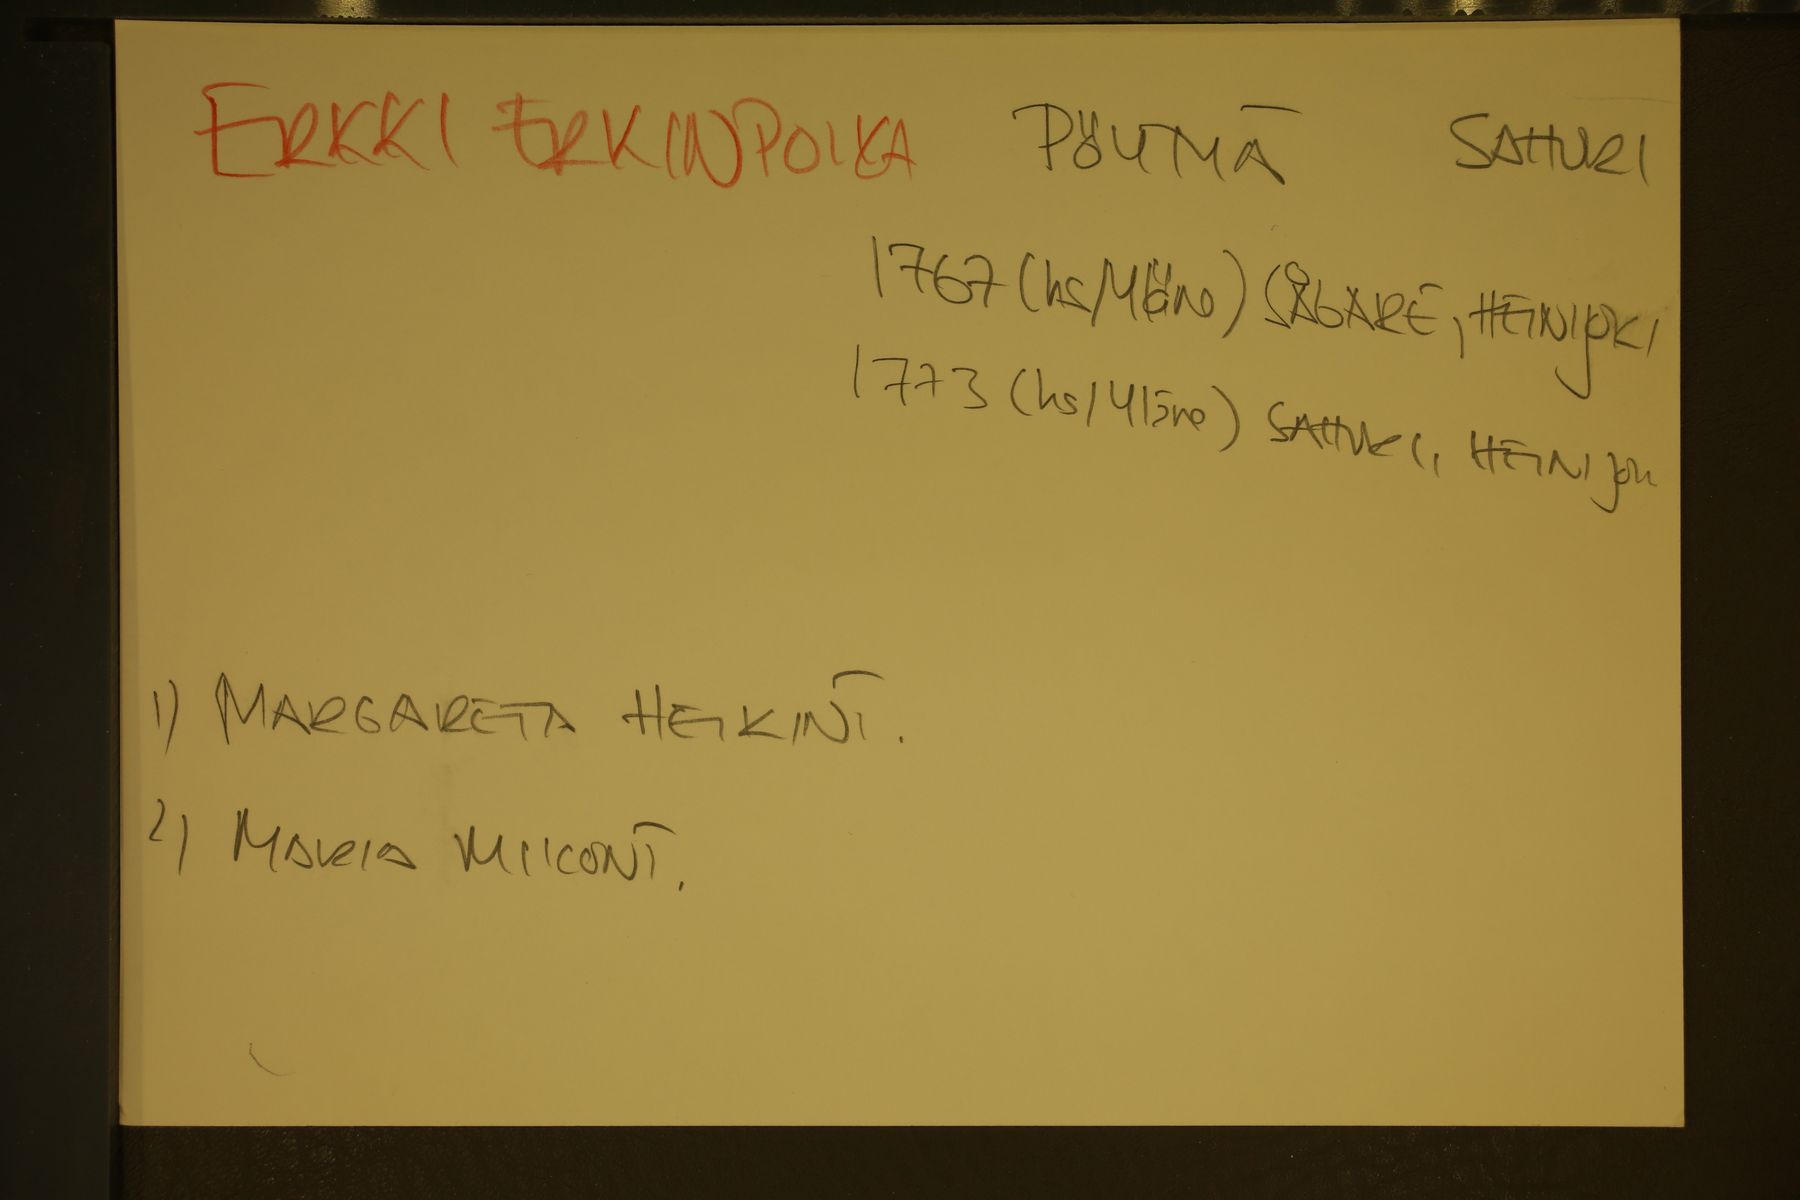 ERKKI ERKINPOIKA PÖYTYÄ SAHURI
1767 (hs/Yläne) SÅGARE, HEINIJOKI
1773 (hs/Yläne) SAHURI, HEINIJOKI
1) MARGARETA HEIKINT.
2) MARIA MIKONT.